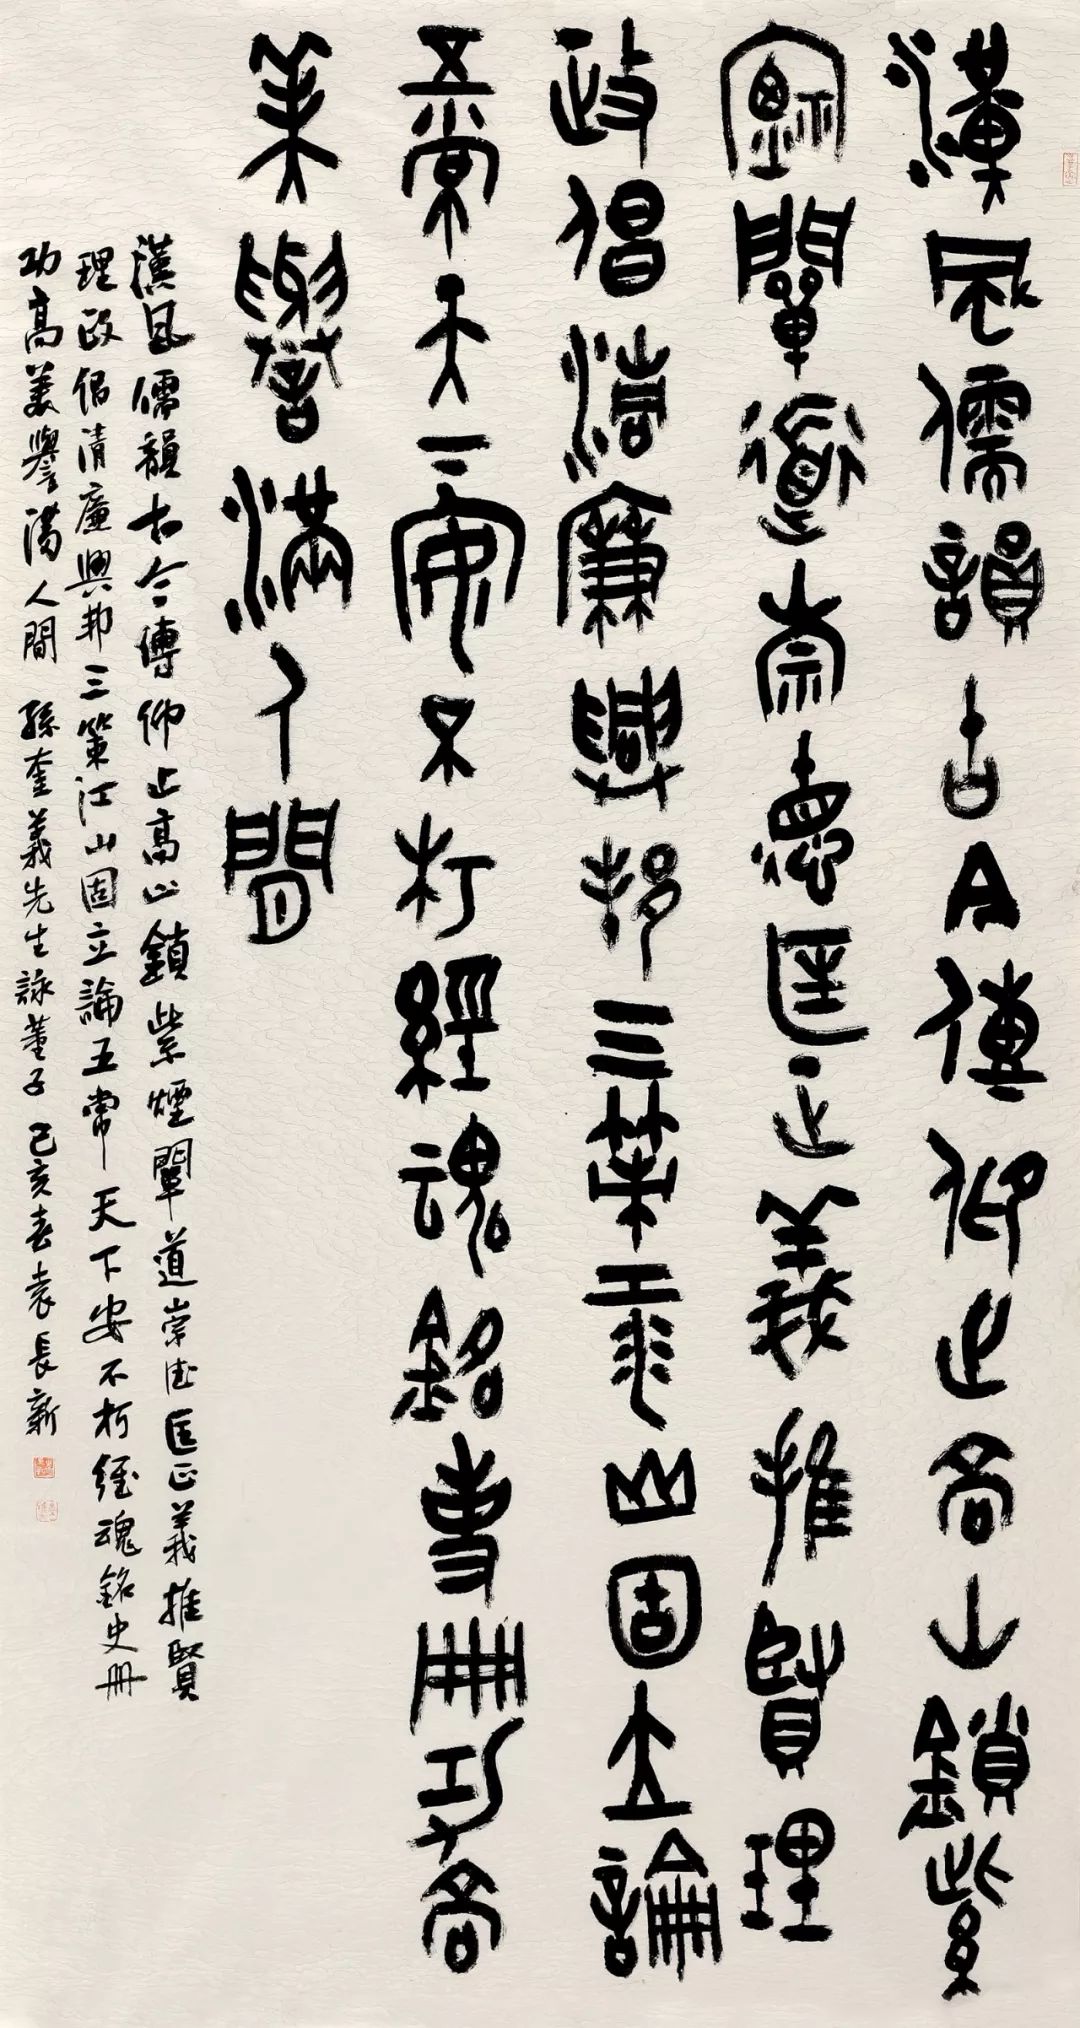 漢風儒韻古今傳仰止高山鎖紫
煙闡道崇德匡正義推賢理
政倡清廉興邦三策江山固立論
五常天下安不朽經魂銘史冊功高
美譽滿人間
漢風儒韻古今傳仰止高山鎖紫煙闡道崇德匡正義推賢
理政倡清廉興邦三策江山固立論五常天下安不朽經魂銘史冊
功高美譽滿人間 孫奎義先生詠董子 己亥春袁長新